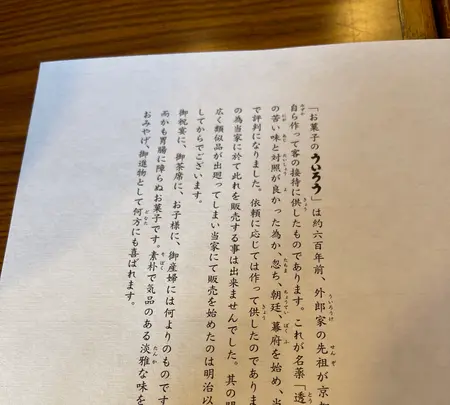 「お菓子のういろう」は約六百年前、外郎家の先祖が京
自ら作って客の接待に供したものであります。これが名薬「透
の苦い味と対照が良かった為か、忽ち、朝廷、幕府を始め、
で評判になりました。依頼に応じては作って供したのであり
の為当家に於て此れを販売する事は出来ませんでした。其の
広く類似品が出廻ってしまい当家にて販売を始めたのは明治以
してからでございます。
御祝宴に、御茶席に、お子様に、御産婦には何よりのものです
而かも胃腸に障らぬお菓子です。素朴で気品のある淡雅な味を
おみやげ、御進物として何方にも喜ばれます。